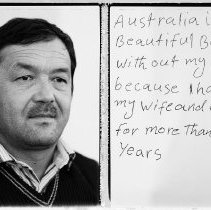 Australia i
Beautiful B
with out my
because I ha
my wife and
for more Than
Years